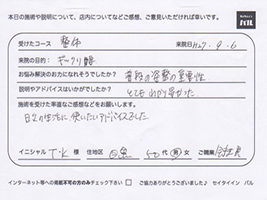 本日の施術や説明について、店内についてなどご感想、ご意見いただければ幸いです。
バル
受けたコース 整体 来院日 H27.9.6
来院の目的: ギックリ腰
お悩み解決のお力になれそうでしたか? 普段の姿勢の重要性
説明やアドバイスはいかがでしたか? とても分かり易かった
施術を受けた率直なご感想などをお願いします。
日々の生活に使いたいアドバイスでした
イニシャル T・K 様 住地区 目黒 50代 男 女 ご職業 会社員
インターネット等への掲載不可の方のみチェック下さい □ ご協力ありがとうございました♪ セイタイイン バル